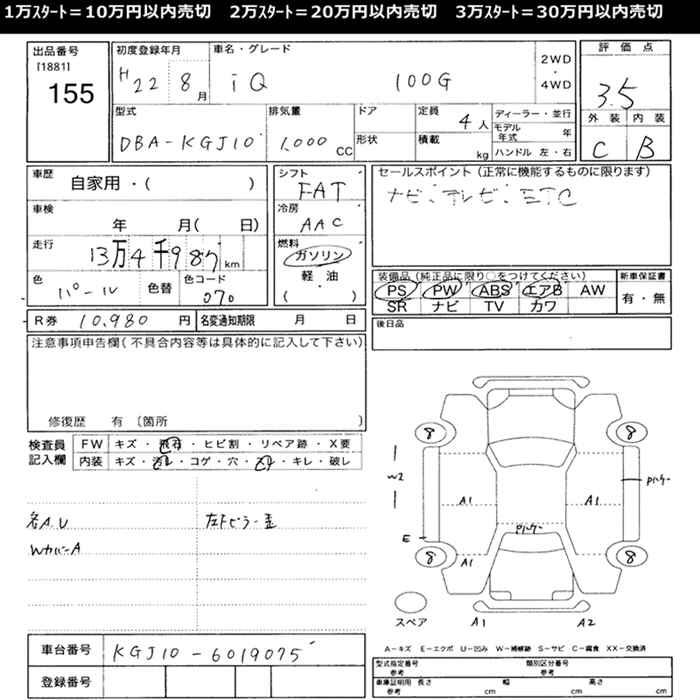 1万ｽﾀｰﾄ＝10万円以内売切　2万ｽﾀｰﾄ＝20万円以内売切　3万ｽﾀｰﾄ＝30万円以内売切
出品番号
[1881]
155
初度登録年月
H22 8月
車名・グレード
iQ 100G
2WD
・
4WD
評価点
3.5
外装 内装
C B
型式
DBA-KGJ10
排気量
1,000 CC
ドア
形状
定員
4人
積載
kg
ディーラー・並行
モデル年式 年
ハンドル 左・右
車歴
自家用・( )
車検
年 月( 日)
走行
13万4千987km
色
パール
色替
色コード
070
シフト
FAT
冷房
AAC
燃料
ガソリン
軽・油
( )
セールスポイント（正常に機能するものに限ります）
ナビ・テレビ・ETC
装備品（純正品に限り○をつけてください）
PS PW ABS エアB AW
SR ナビ TV カワ
新車保証書
有・無
R券 10,980 円
名変通知期限 月 日
後日品
注意事項申告欄（不具合内容等は具体的に記入して下さい）
修復歴 有〔箇所
検査員
記入欄
FW キズ・飛石・ヒビ割・リペア跡・X要
内装 キズ・汚レ・コゲ・穴・スレ・キレ・破レ
各A.U
WカバーA
左Fピラー
8 8
W2
A1 A1
Pハケー
Pハケー
E
8 8
A1
スペア
A1 A2
車台番号
KGJ10-6019075
登録番号
A－キズ E－エクボ U－凹み W－補修跡 S－サビ C－腐食 XX－交換済
型式指定番号
参考
類別区分番号
参考
車庫証明用 長さ 幅 高さ
参考 cm cm cm